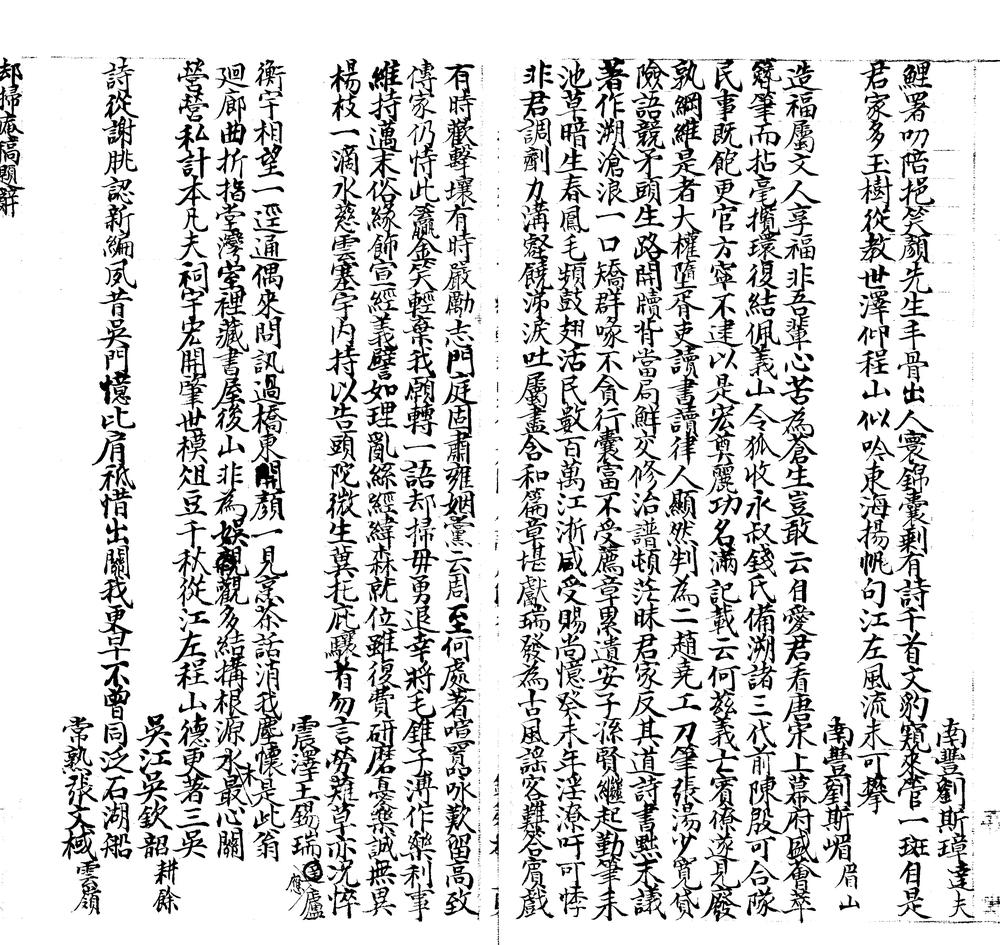 南豐劉斯璋達夫
鯉署叨陪挹笑顏先生手骨出人寰錦囊剩有詩千首文豹窺來管一斑自是
君家多玉樹從教世澤仰程山似吟東海揚帆句江左風流未可攀
南豐劉斯嵋眉山
造福屬文人享福非吾輩心苦為蒼生豈敢云自愛君看唐宋上幕府盛會萃
簪筆而拈毫攬環復結佩義山令狐收永叔錢氏備溯諸三代前陳殷可合隊
民事既飽更官方寧不逮以是宏奠麗功名滿記載云何茲義亡賓僚遂見廢
孰綱維是者大權墮胥吏讀書讀律人顯然判為二趙堯工刀筆張湯少寬貸
險語競矛頭生路開牘背當局鮮交修治譜頓茫昧君家反其道詩書黜末議
著作溯滄浪一口矯群喙不貪行囊富不受薦章累遺安子孫賢繼起勤筆耒
池草暗生春鳳毛頻鼓翅活民數百萬江淅咸受賜尚憶癸未年淫潦吁可悸
非君調劑力溝壑饒涕淚吐屬盡含和篇章堪獻瑞發為古風謠客難答賓戲
有時歡擊壤有時嚴勵志門庭固肅雍姻黨云周至何處著喧囂咏歎留高致
傳家仍恃此籯金笑輕棄我願轉一語却掃毋勇退幸將毛錐子溥作樂利事
維持邁末俗緣飾宣經義譬如理亂絲經緯森就位雖復費研磨憂樂誠無異
楊枝一滴水慈雲塞宇內持以告頭陀微生冀托庇驥首勿言勞雉草亦況悴
震澤王錫瑞 廬
衡宇相望一逕通偶來問訊過橋東開顏一見烹茶話消我塵懷是此翁
廻廊曲折指堂灣堂裡藏書屋後山非為娛觀觀多結構根源水木最心關
營營私計本凡夫祠宇宏開肇世模俎豆千秋從江左程山德更著三吳
吳江吳欽韶耕餘
詩從謝朓認新編夙昔吳門憶比肩祗惜出關我更早不曾同泛石湖船
常熟張文棫雲嶺
却掃庵稿題辭